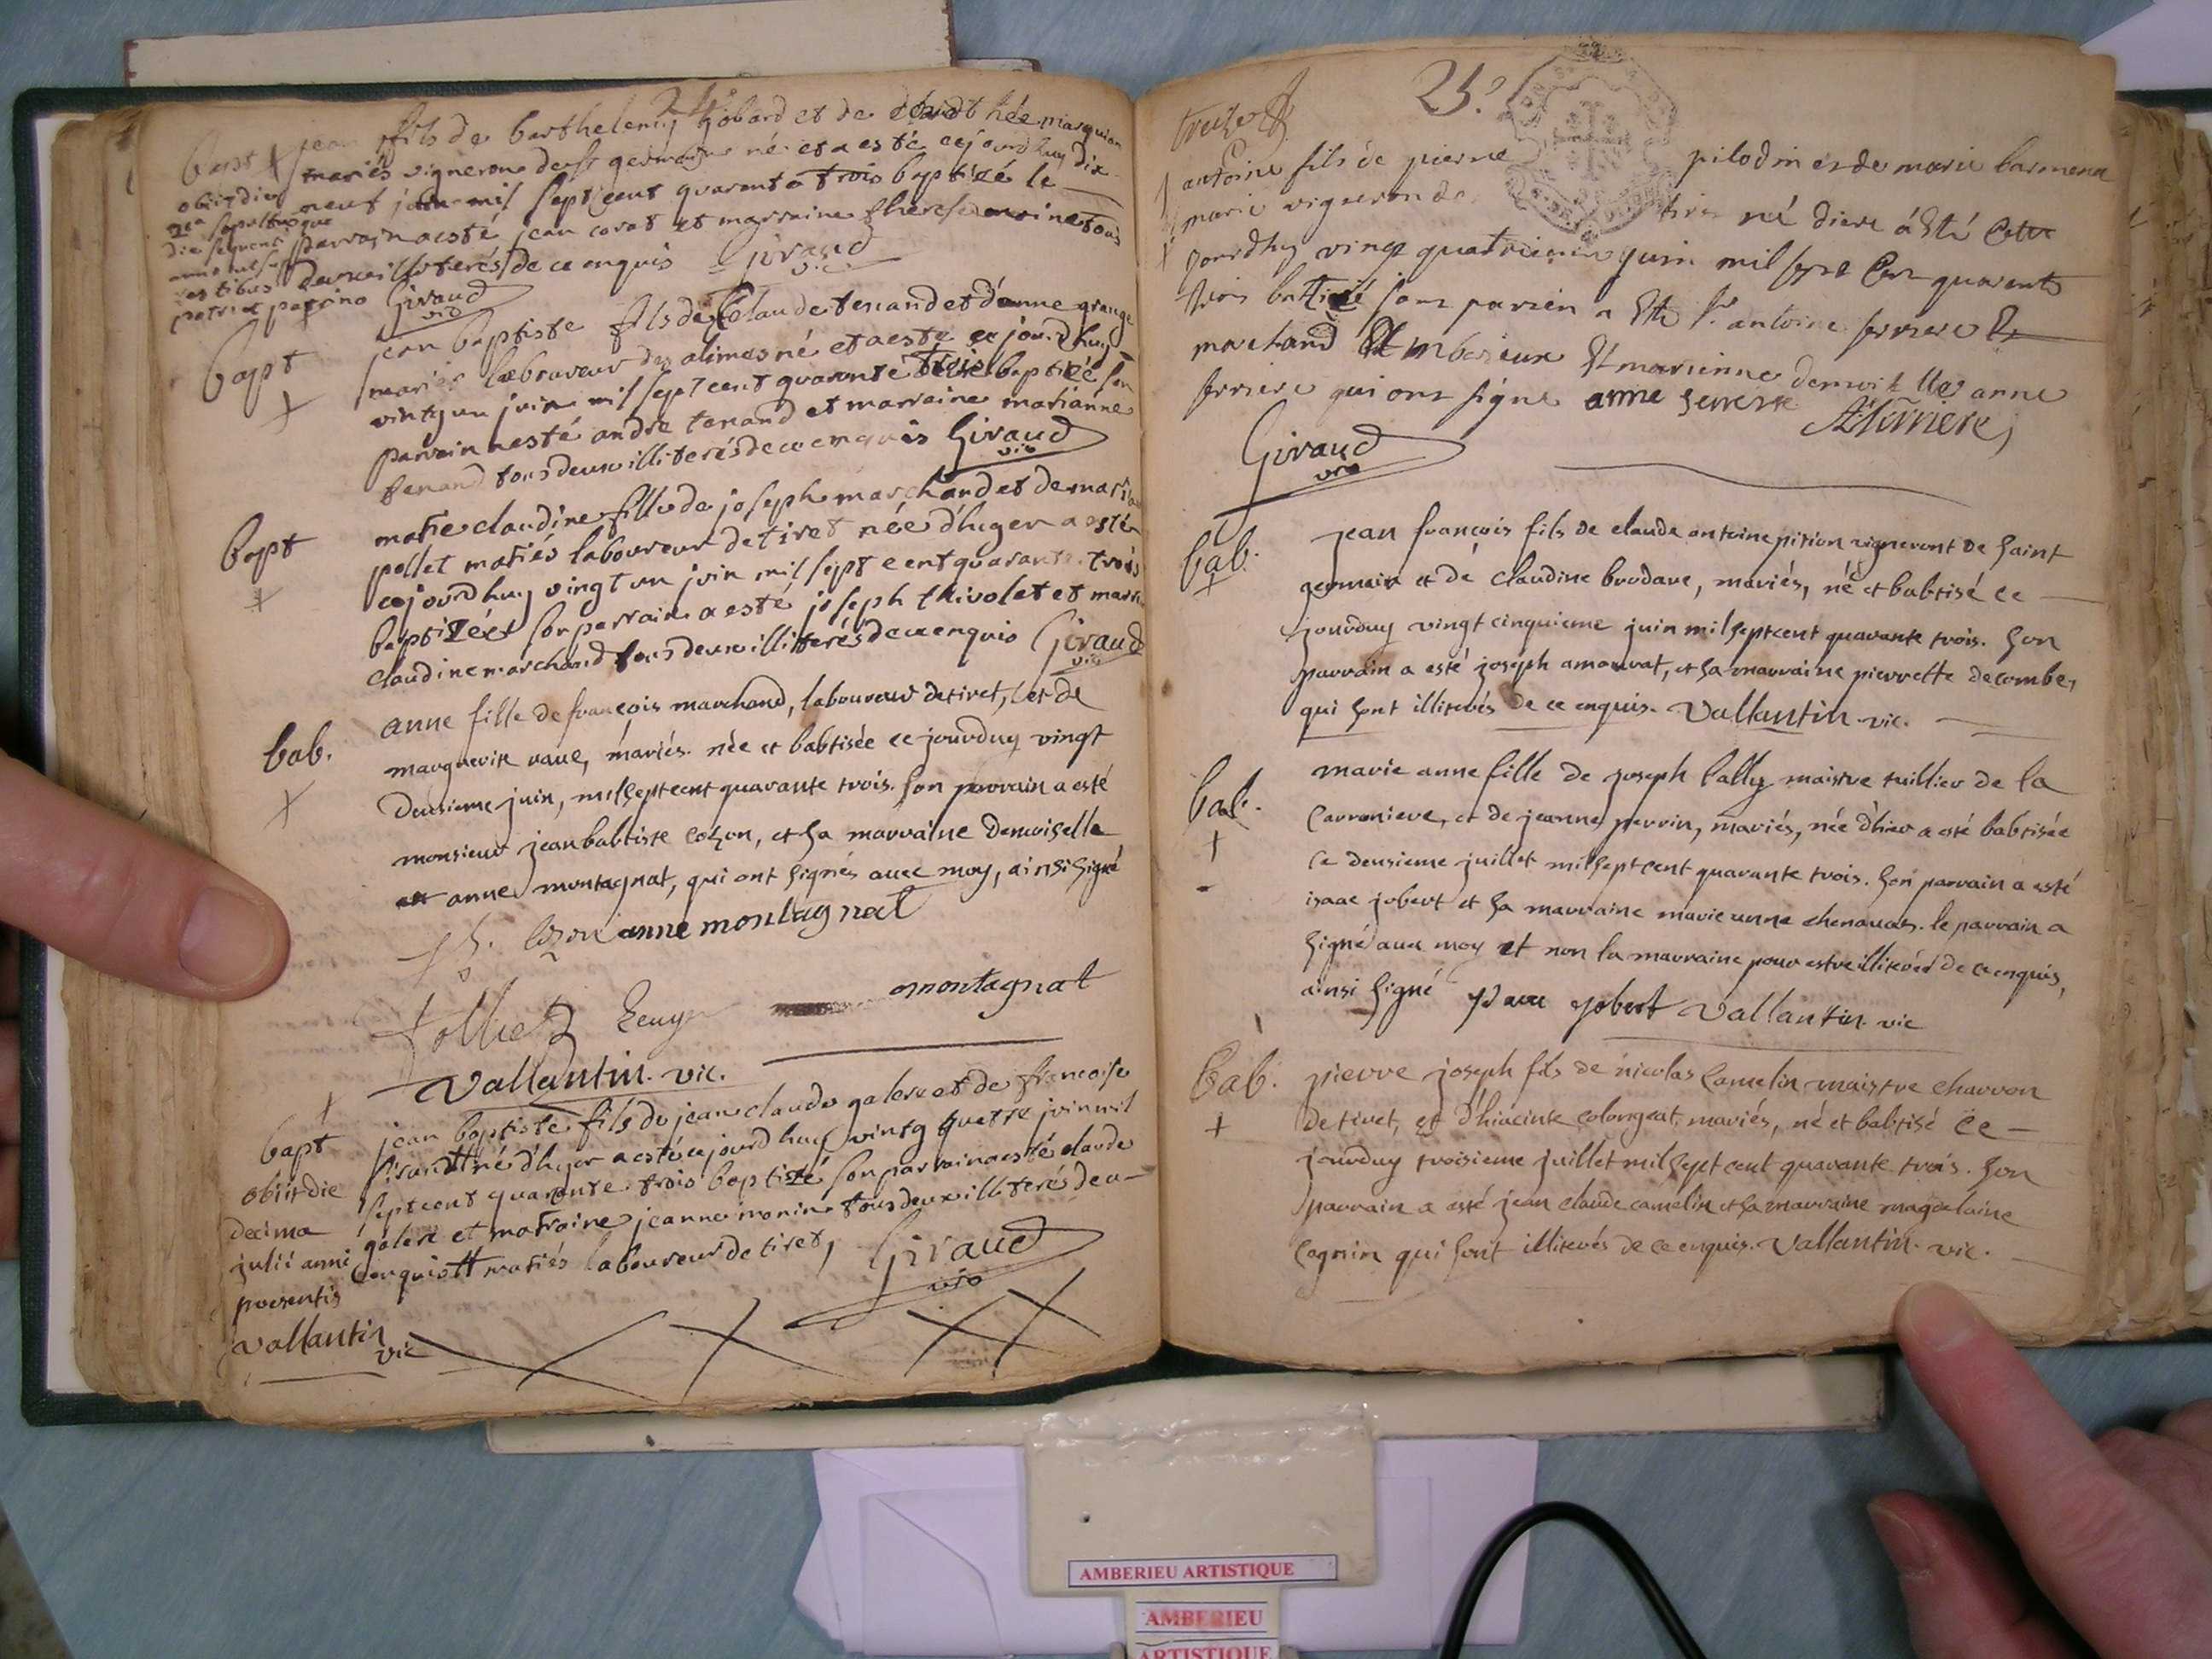 bapt jean fils de barthelemy gobard et de
mariés vigneron de st germain né et a esté cejourdhuy dix
neuf juin mil sept cent quarante trois baptizé le
parrain a esté jean corat et marraine therese
deux illiterés de ce enquis Giraud
vic
obiit die
sepultusque
die sequenti
patri et patrino Giraud
vic
bapt
jean baptiste fils de Claude tenand et d'anne grange
mariés laboureur des alimes né et a esté ce jourdhuy
vintg un juin mil sept cent quarante trois baptizé son
parrain a esté andre tenand et marraine marianne
tenand tous deux illiterés de ce enquis Giraud
vic
bapt
marie claudine fille de joseph marchand et de
pollet mariés laboureur de tiret née d'hyger a esté
cejourdhuy vingt un juin mil sept cent quarante trois
baptizée son parrain a esté joseph thivolet et
claudine marchand tous deux illiterés de ce enquis Giraud
vic
bab.
anne fille de françois marchand, laboureur de tiret, et de
marguerite rave, mariés. née et babtisée ce jourduy vingt
deusieme juin, mil sept cent quarante trois. son parrain a esté
monsieur jean babtiste cozon, et sa marraine demoiselle
anne montagnat, qui ont signés avec moy, ainsi signé
cozon anne montagnat
montagnat
Vallantin. vic.
bapt
jean baptiste fils de jean claude galere et de francoise
né d'hyer a esté cejourdhuy vintg quatre juin mil
sept cent quarante trois baptizé son parrain a esté claude
galere et marraine jeanne monin tous deux illiterés de ce
enquis mariés laboureur de tiret, Giraud
vic
obiit die
decima
julii anni
praesentis
Vallantin
vic
25e
antoine fils de pierre pilodin et de marie barmena
marié vigneron de tiret né diere a Eté
jourdhuy vingt quatrieme juin mil sept Cen quarente
trois battizé sont parien a Ete Sr antoine ferriere
marchand Ambérieux Et marienne demoiselle anne
ferriere qui ont signe anne ferriere
A ferriere
Giraud
vic
bab.
jean françois fils de claude antoine pition vigneront de saint
germain et de claudine brodare, mariés, né et babtisé ce
jourduy vingt cinquieme juin mil sept cent quarante trois. son
parrain a esté joseph amouvat, et sa marraine pierrette decombe,
qui sont illiterés de ce enquis. Vallantin. vic.
bab.
marie anne fille de joseph lally maistre tuillier de la
Carroniere, et de jeanne perrin, mariés, née d'hier a esté babtisée
ce deusieme juillet mil sept cent quarante trois. son parrain a esté
isaac jobert et sa marraine marie anne chenavas. le parrain a
signé avec moy et non la marraine pour estre illiterée de ce enquis,
ainsi signé jobert Vallantin. vic
bab.
pierre joseph fils de nicolas Camelin maistre charron
de tiret, et d'hiacinte colongeat, mariés, né et babtisé ce
jourduy troisieme juillet mil sept cent quarante trois. son
parrain a esté jean claude camelin et sa marraine magdelaine
Cagnin qui sont illiterés de ce enquis. Vallantin. vic.
AMBERIEU ARTISTIQUE
AMBERIEU
ARTISTIQUE